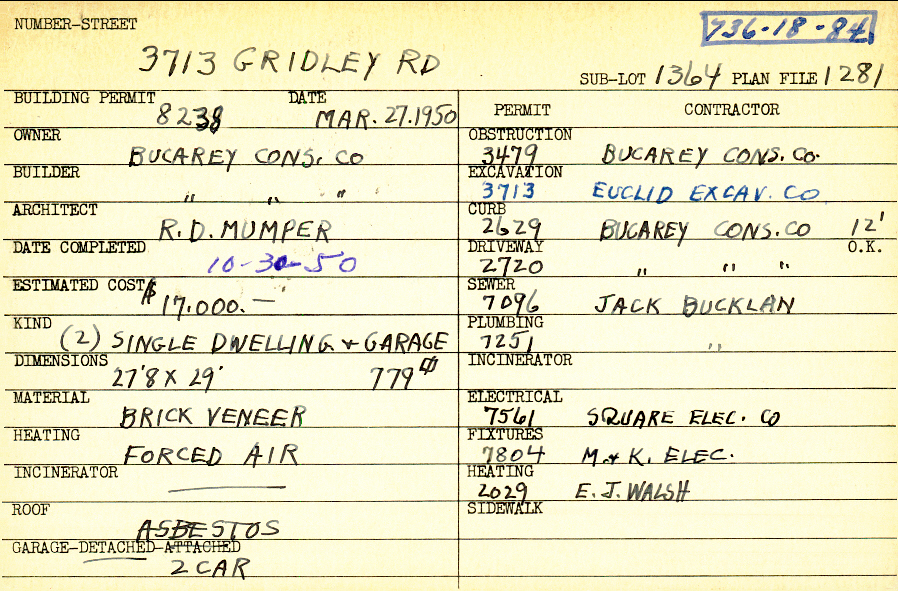 NUMBER-STREET
736-18-84
3713 GRIDLEY RD
SUB-LOT 1364 PLAN FILE 1281
BUILDING PERMIT DATE
8238 MAR. 27. 1950
OWNER
BUCAREY CONS. CO
BUILDER
" " "
ARCHITECT
R. D. MUMPER
DATE COMPLETED
10-30-50
ESTIMATED COST $
17,000.—
KIND
(2) SINGLE DWELLING & GARAGE
DIMENSIONS
27'8 X 29' 779
MATERIAL
BRICK VENEER
HEATING
FORCED AIR
INCINERATOR
ROOF
ASBESTOS
GARAGE-DETACHED-ATTACHED
2 CAR
PERMIT CONTRACTOR
OBSTRUCTION
3479 BUCAREY CONS. CO.
EXCAVATION
3713 EUCLID EXCAV. CO
CURB
2629 BUCAREY CONS. CO 12'
DRIVEWAY O.K.
2720 " " "
SEWER
7096 JACK BUCKLAN
PLUMBING
7251 "
INCINERATOR
ELECTRICAL
7561 SQUARE ELEC. CO
FIXTURES
7804 M. & K. ELEC.
HEATING
2029 E. J. WALSH
SIDEWALK